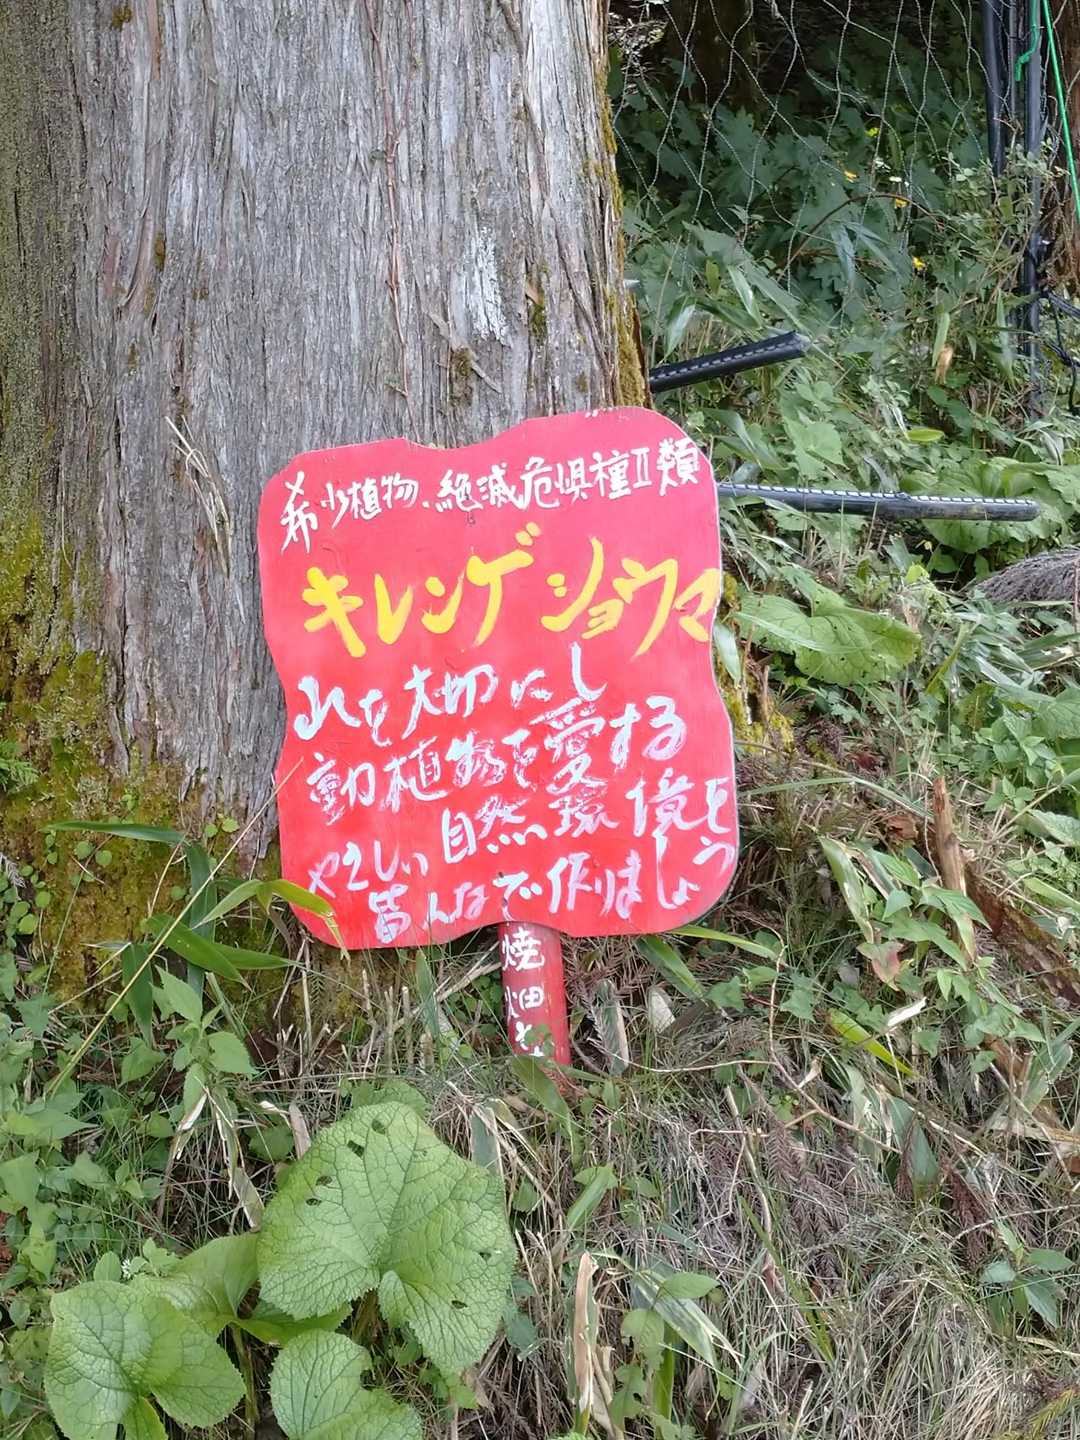 希少植物、絶滅危惧種II類
キレンゲショウマ
れを大切にし
動植物を愛する
やさしい自然環境を
皆んなで作りましょう
焼畑と